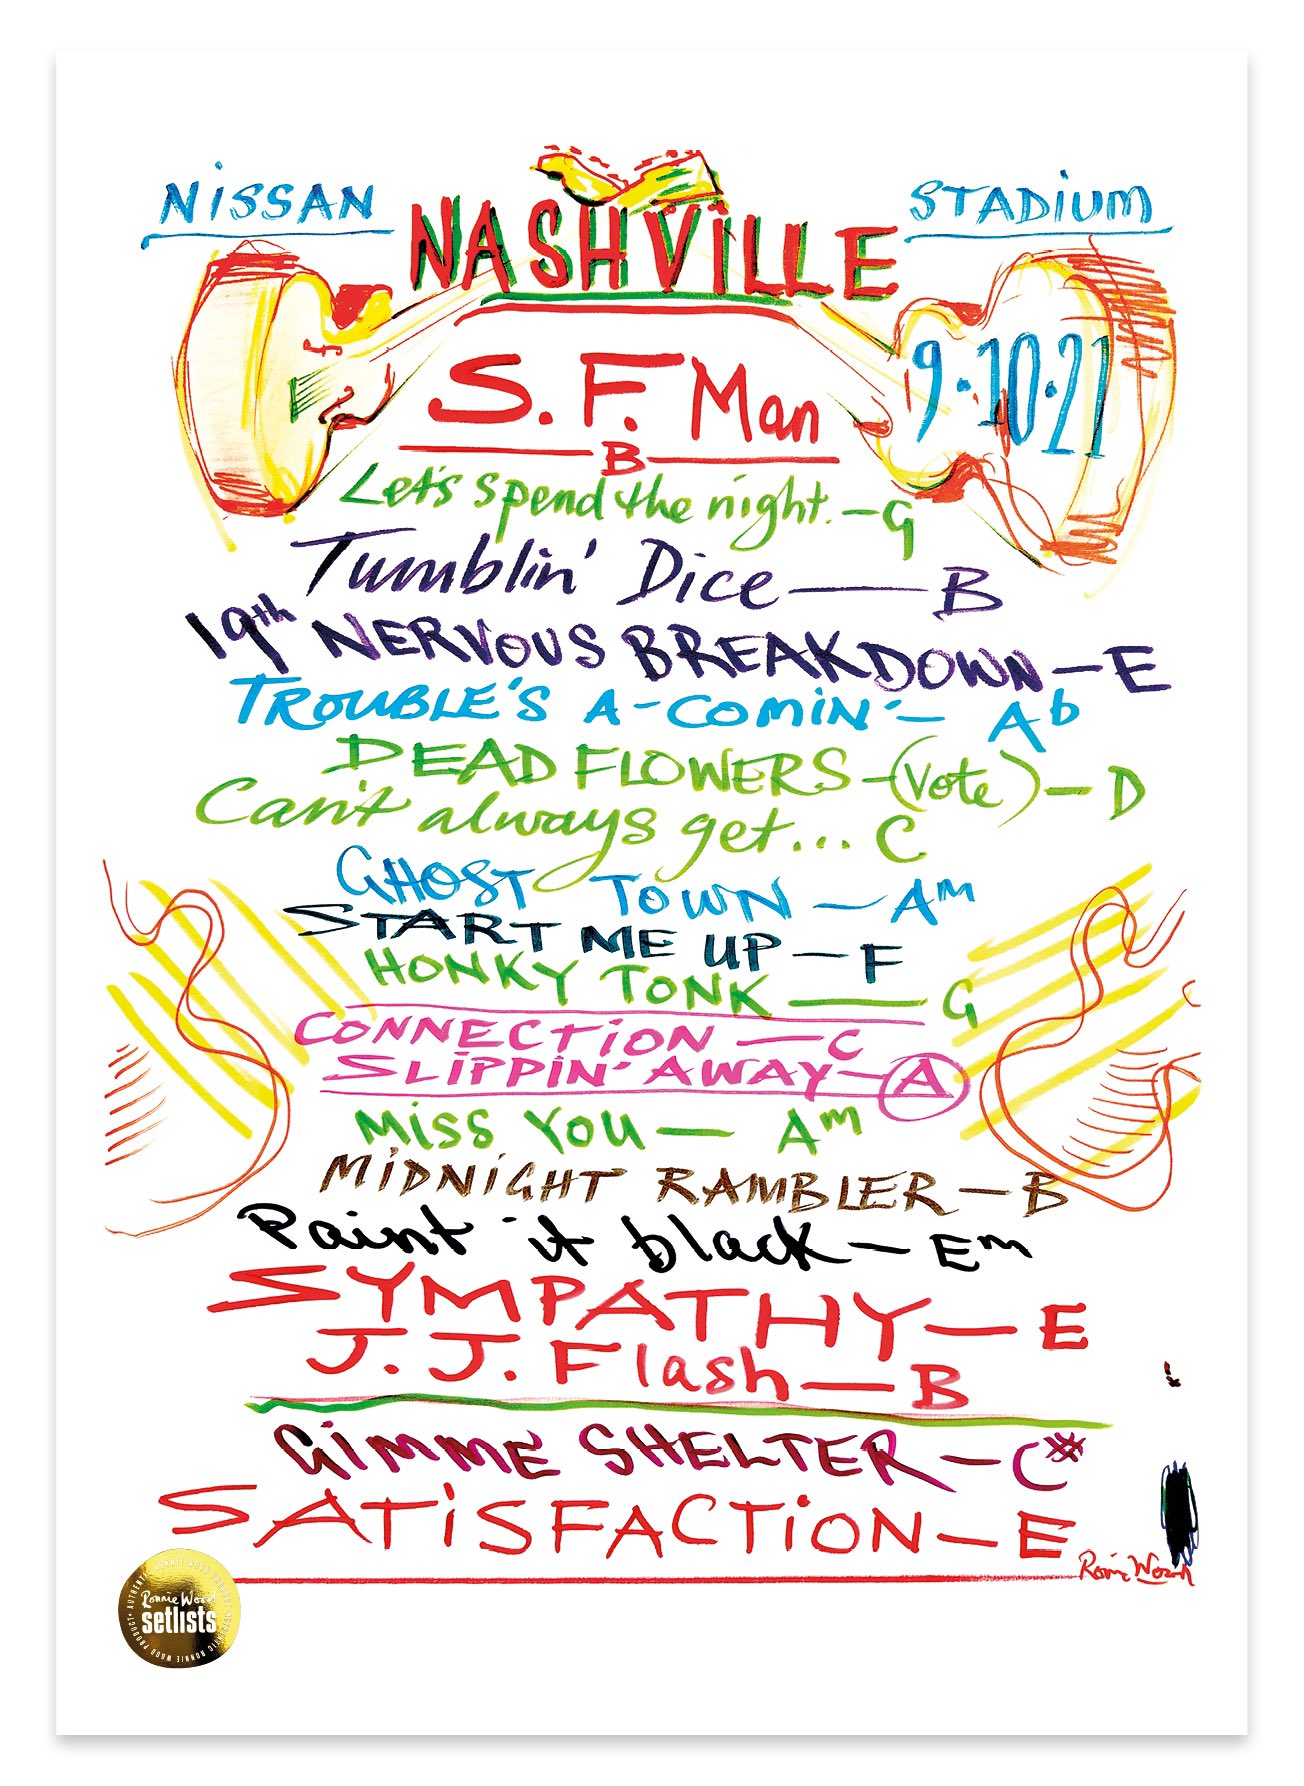 NiSSAN
STADiUM
NASHViLLE
9·10·21
S.F. Man
B
Let's spend the night. — G
Tumblin' Dice — B
19th NERVOUS BREAKDOWN — E
TROUBLE'S A-COMIN' — Ab
DEAD FLOWERS — (Vote) — D
Can't always get... C
GHOST TOWN — Am
START ME UP — F
HONKY TONK — G
CONNECTiON — C
SLiPPiN' AWAY — A
MiSS YOU — Am
MiDNiGHT RAMBLER — B
Paint it black — Em
SYMPATHY — E
J.J. Flash — B
GiMME SHELTER — C#
SATiSFACTiON — E
Ronnie Wood
Ronnie Wood
setlists